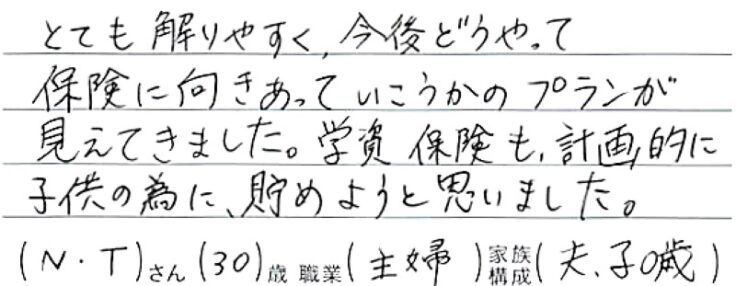 とても解りやすく、今後どうやって
保険に向きあっていこうかのプランが
見えてきました。学資保険も、計画的に
子供の為に、貯めようと思いました。
(N・T)さん(30)歳 職業(主婦)家族構成(夫、子0歳)